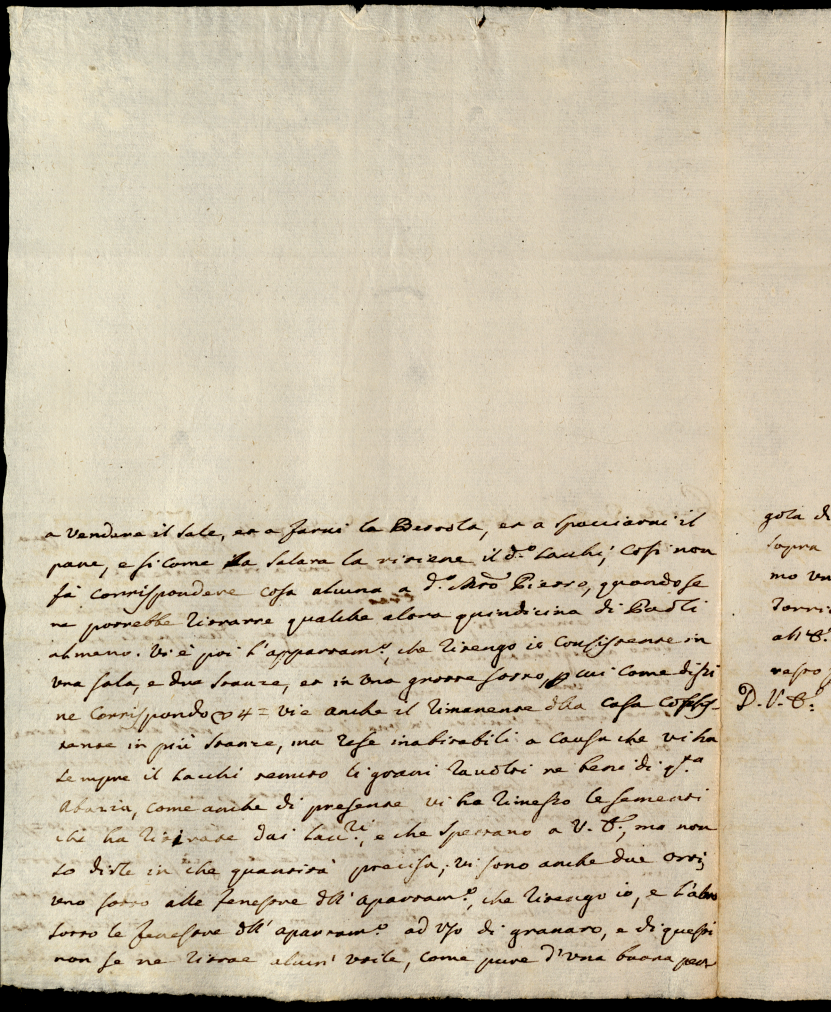 a vendere il sale, et a farvi la Bettola, et a spacciarvi il
pane, e sicome la Salara la ritiene il d.º Lacchi; così non
fà corrispondere cosa alcuna a d.º Mrõ Pietro, quando se
ne potrebbe ritrarre qualche altra quindicina di Paoli
almeno. Vi è poi l'appartam.º, che ritengo io consistente in
una sala, e due stanze, et in una grotte sotto, p cui come dissi
ne corrispondo 4 = vi è anche il rimanente dlla casa consis-
tente in più stanze, ma rese inabitabili a causa che vi ha
sempre il Lacchi tenuto li grani racolti ne beni di q.ta
Abazia, come anche di presente vi ha rimesso le sementi
che ha ritirate dai, e che spettano a V. E., ma non
so dirle in che quantità precisa; vi sono anche due orti,
uno sotto alle fenestre dll' apartam.º, che ritengo io, e l'altro
sotto le fenestre dll' apartam.º ad uso di granaro, e di questi
non se ne ritrae alcun' utile, come pure d'una buona per
gola di
sopra
mo un
Torri
all' E.
resto
D. V. E.